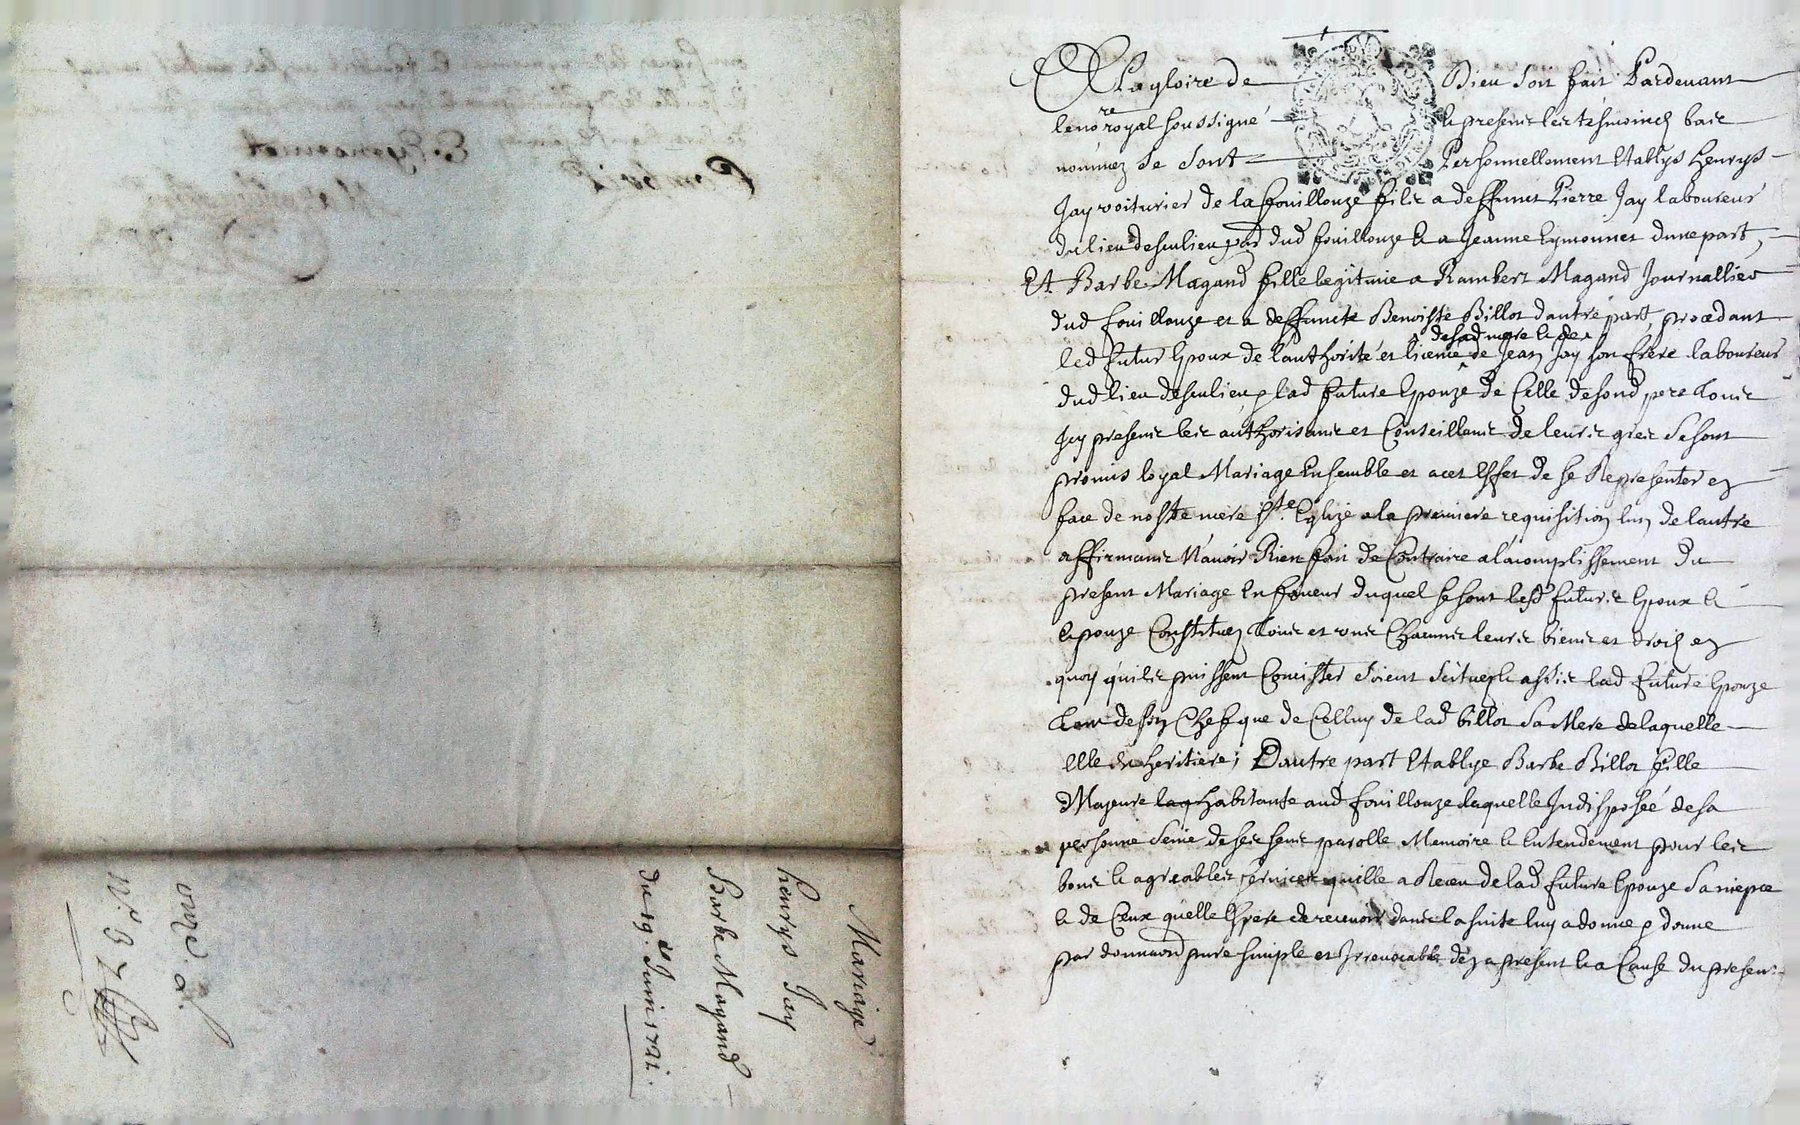 Mariage
henrys Jay
Barbe Magand
du 19.e Juin 1721.
onze L.
N.o 37
A La gloire de Dieu soit fait Pardevant
le no.re royal soussigné & presents les tesmoincz bas
nommez se sont Personnellement Etablys henrys
Jay voiturier de la fouillouze filz a deffunct Pierre Jay laboureur
du lieu deseulieu par dud fouillouze & a Jeanne Eymonnet dune part,
Et Barbe Magand fille legitime a Rambert Magand Journallier
dud fouillouze et a deffuncte Benoiste Billot dautre part, procedant
led futur Epoux de l'authorité et licence desad mere & de Jean Jay son frère laboureur
dud lieu deseulieu & lad future Epouze de Celle desond pere Tous
Icy presents les authorisants et Conseillants de leurs grez se sont
promis loyal Mariage Ensemble et a cet Effet de se Representer en
face de nostre mere S.te Eglize a la premiere requisition lun de lautre
affirmants N'avoir Rien fait de Contraire a lacomplissement du
present Mariage En faveur duquel se sont lesd futurs Epoux &
Epouze Constituez Tous et uns Chacuns leurs biens et droicz en
quoy quils puissent Concister soient scituez & assis lad future Epouze
Tant de son Chef que de Celluy de lad billot sa Mere de laquelle
Elle est heritiere; Dautre part Etablye Barbe Billot fille
Majeure laq habitante aud fouillouze laquelle Indisposée de sa
personne Seine de ses sens parolle Memoire & Entendement pour les
bons & agreables services quelle a Receu de lad future Epouze sa niepce
& de Ceux quelle Espere de recevoir dans la suite luy a donné & donne
par donnaon pure simple et Irrevocable dez a present & a Cause du present